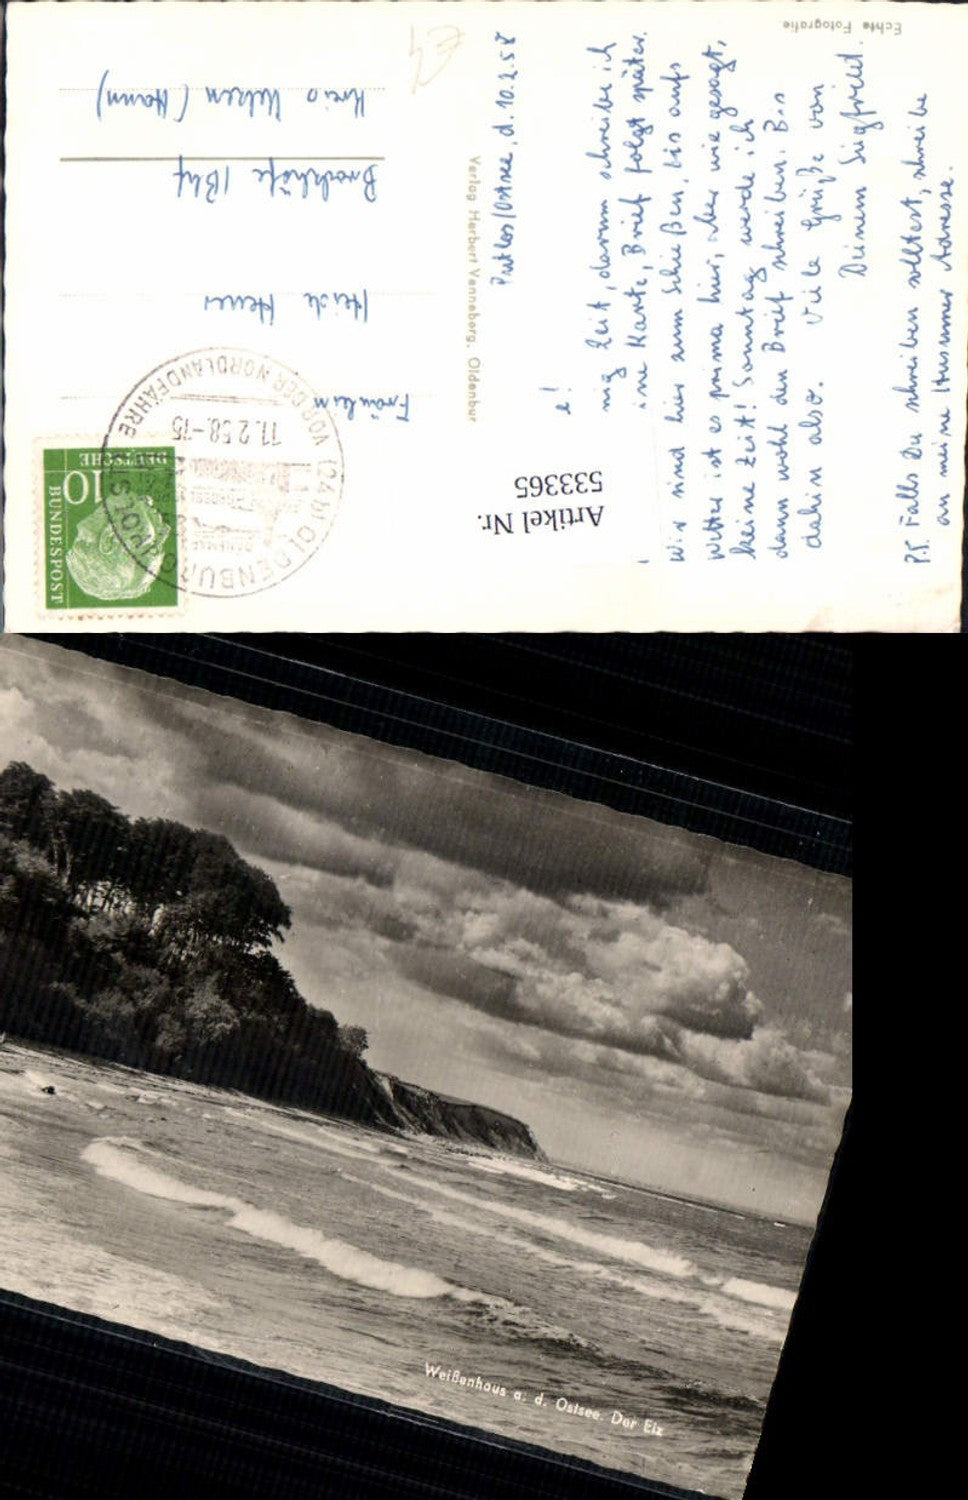 Echte Fotografie
Putlos/Ostsee, d. 10.2.58
e!
nig Zeit, darum schreibe ich
ine Karte, Brief folgt später.
Wir sind hier zum Schießen, bis aufs
Wetter ist es prima hier, aber wie gesagt,
keine Zeit! Sonntag werde ich
dann wohl den Brief schreiben. Bis
dahin also. Viele Grüße von
Deinem Siegfried.
P.S. Falls Du schreiben solltest, schreibe
an meine Husumer Adresse.
Artikel Nr.
533365
Verlag Herbert Vanneborg, Oldenbur
DEUTSCHE
BUNDESPOST
10
(24b) OLDENBURG (HOLST)
VOR DER NORDLANDFÄHRE
11.2.58.-15
Fräulein
Heide
Kreis Uelzen (Hann)
Weißenhaus a. d. Ostsee. Der Eiz